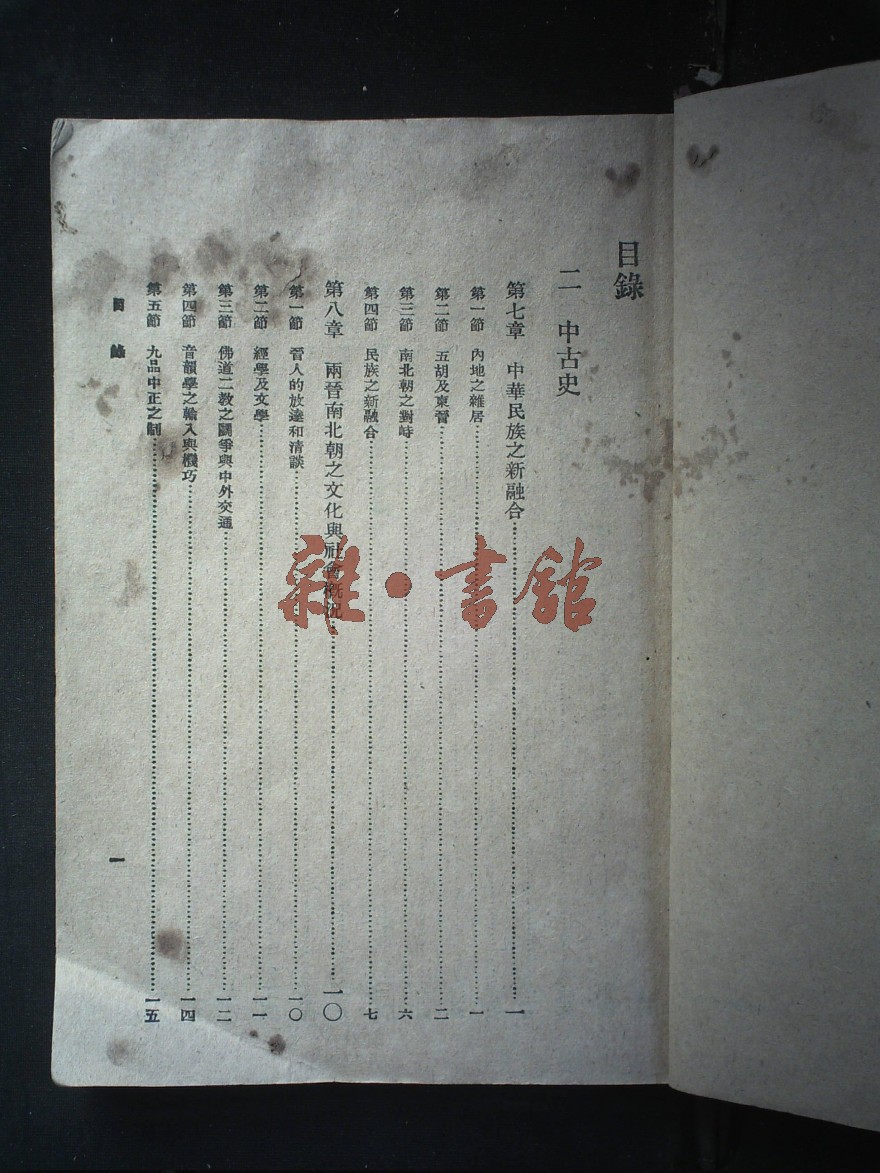 目錄
二 中古史
第七章 中華民族之新融合……一
第一節 內地之雜居……一
第二節 五胡及東晉……二
第三節 南北朝之對峙……六
第四節 民族之新融合……七
第八章 兩晉南北朝之文化與社會概況……一〇
第一節 晉人的放達和清談……一〇
第二節 經學及文學……一一
第三節 佛道二教之鬭爭與中外交通……一二
第四節 音韻學之輸入與機巧……一四
第五節 九品中正之制……一五
目錄 一
雜·書館